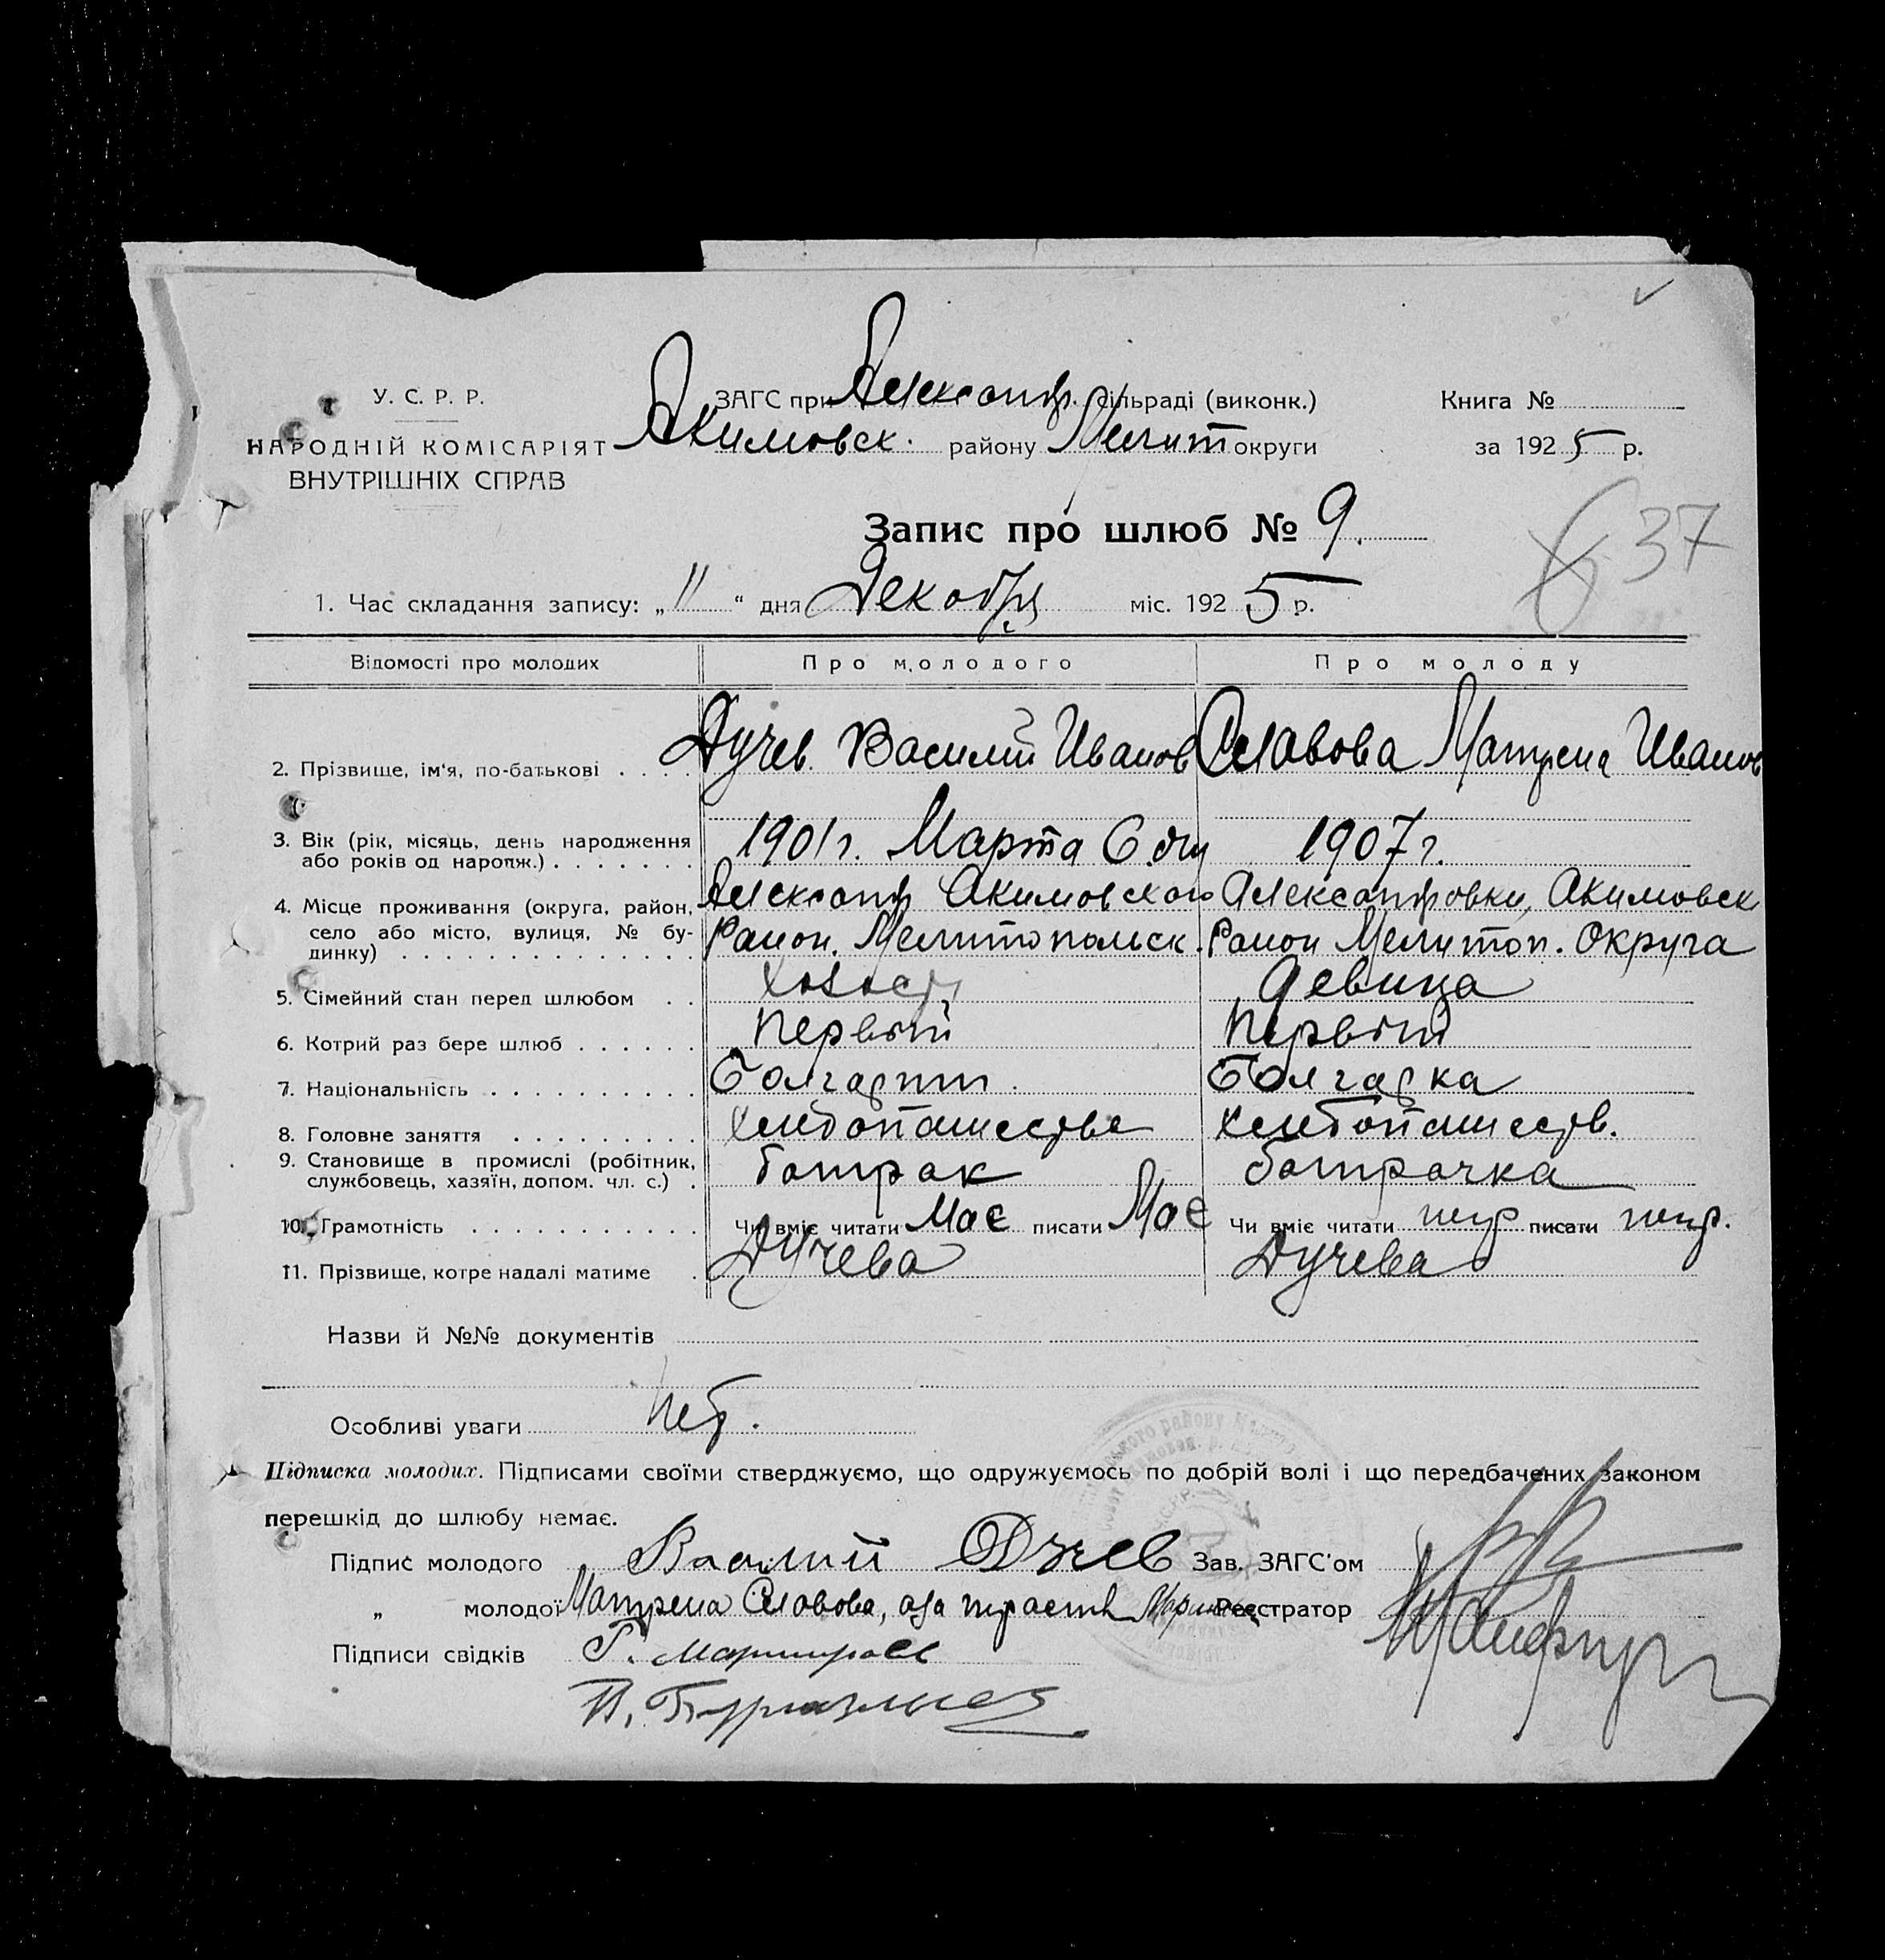 У. С. Р. Р.
НАРОДНІЙ КОМІСАРІЯТ
ВНУТРІШНІХ СПРАВ
ЗАГС при Александр. сільраді (виконк.)
Акимовск. району Мелит округи
Книга №
за 1925 р.
Запис про шлюб № 9.
37
1. Час складання запису: „11“ дня Декабря міс. 1925 р.
Відомості про молодих Про молодого Про молоду
2. Прізвище, ім'я, по-батькові . . . . Дучев Василий Иванов Славова Матрена Иванов
3. Вік (рік, місяць, день народження
або років од народж.) . . . . . . . 1901 г. Марта 6 дня 1907 г.
4. Місце проживання (округа, район, Александр Акимовского Александровки, Акимовск
село або місто, вулиця, № бу- Раион. Мелитопольск. Раион Мелитоп. Округа
динку) . . . . . . . . . . . . . .
5. Сімейний стан перед шлюбом . . Холост девица
6. Котрий раз бере шлюб . . . . . . Первый Первый
7. Національність . . . . . . . . . . Болгарин. Болгарка
8. Головне заняття . . . . . . . . . Хлебопашество Хлебопашеств.
9. Становище в промислі (робітник,
службовець, хазяїн, допом. чл. с.) . батрак батрачка
10. Грамотність . . . . . . . . . . . Чи вміє читати Має писати Має Чи вміє читати негр писати негр.
11. Прізвище, котре надалі матиме . Дучева Дучева
Назви й №№ документів
Особливі уваги Нет.
Підписка молодих. Підписами своїми стверджуємо, що одружуємось по добрій волі і що передбачених законом
перешкід до шлюбу немає.
Підпис молодого Василий Дучев Зав. ЗАГС'ом
„ молодої Матрена Славова, Реєстратор
Підписи свідків